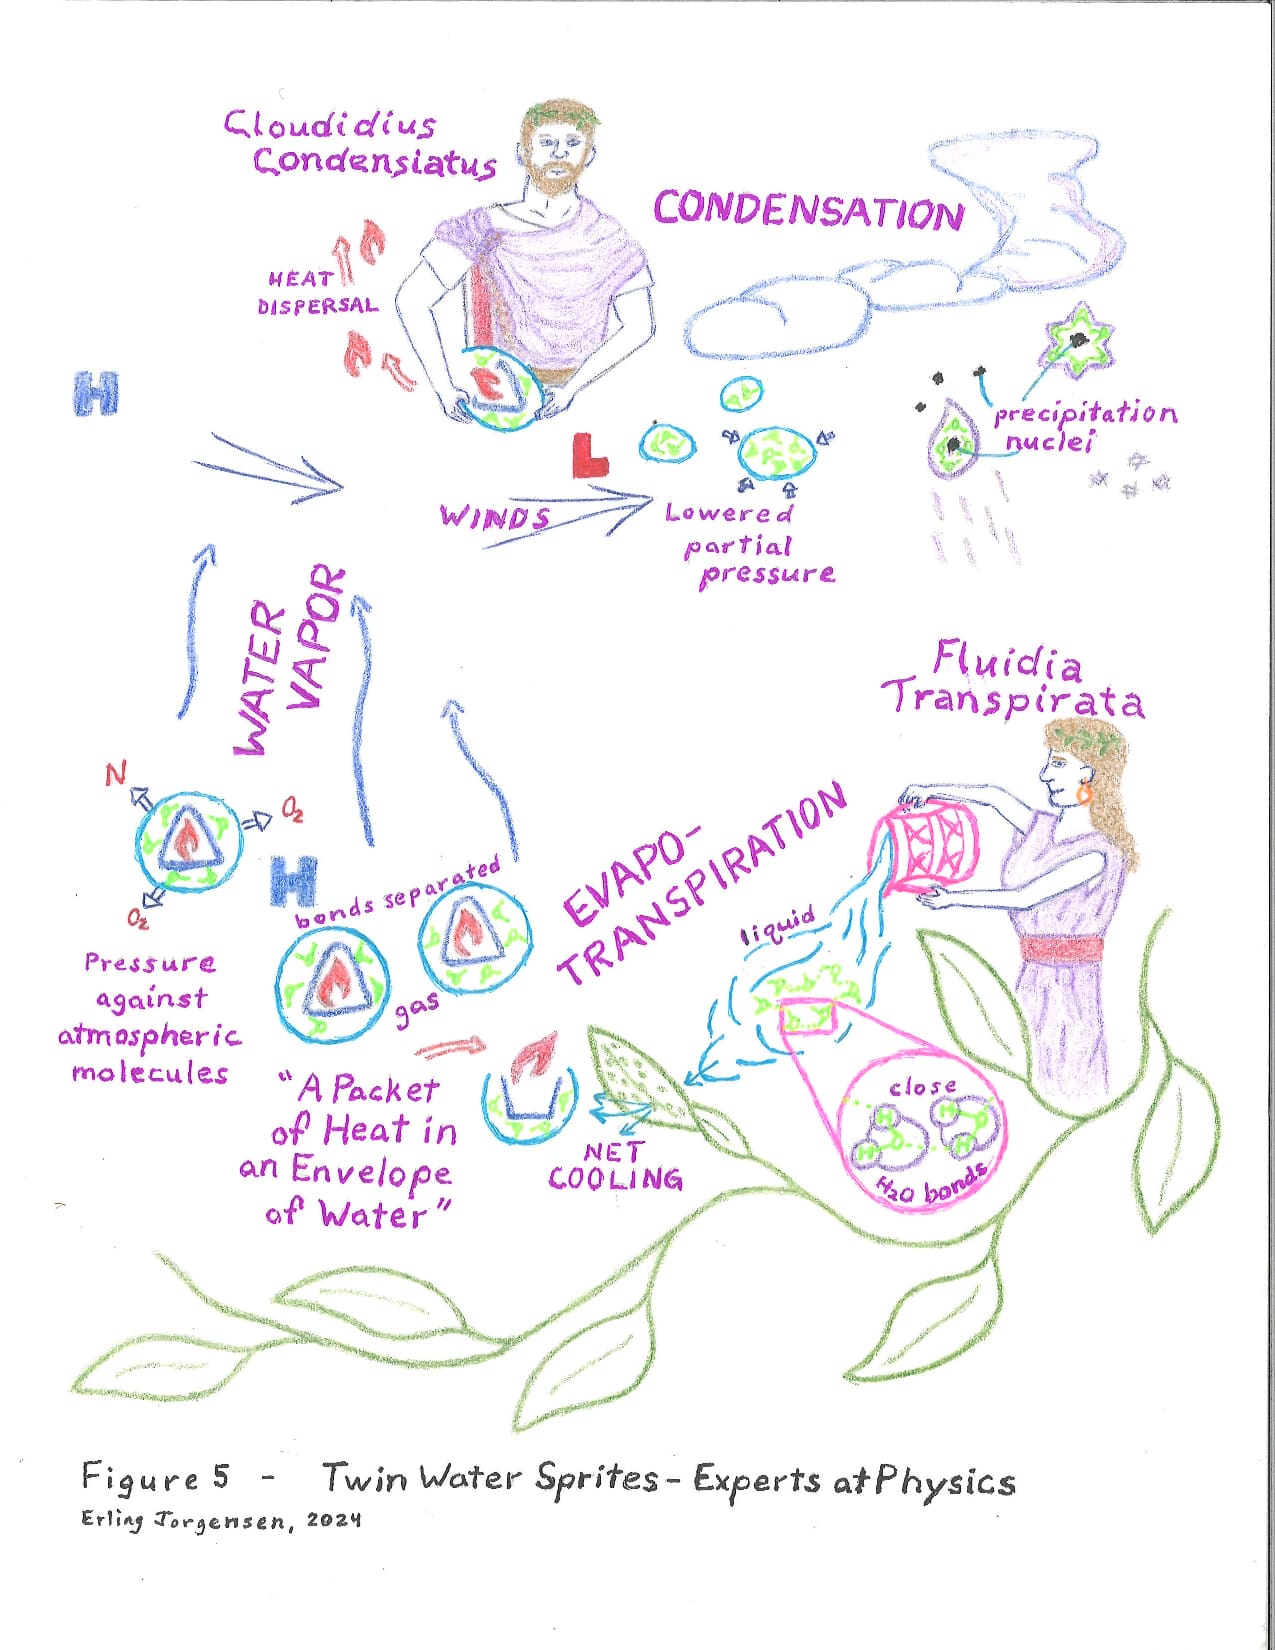 Cloudidius
Condensiatus
CONDENSATION
HEAT
DISPERSAL
H
L
precipitation
nuclei
WINDS
Lowered
partial
pressure
WATER
VAPOR
Fluidia
Transpirata
N
O₂
O₂
H
bonds separated
gas
EVAPO-
TRANSPIRATION
liquid
Pressure
against
atmospheric
molecules
"A Packet
of Heat in
an Envelope
of Water"
NET
COOLING
close
H
H
O
O
H
H
H₂O bonds
Figure 5 - Twin Water Sprites - Experts at Physics
Erling Jorgensen, 2024